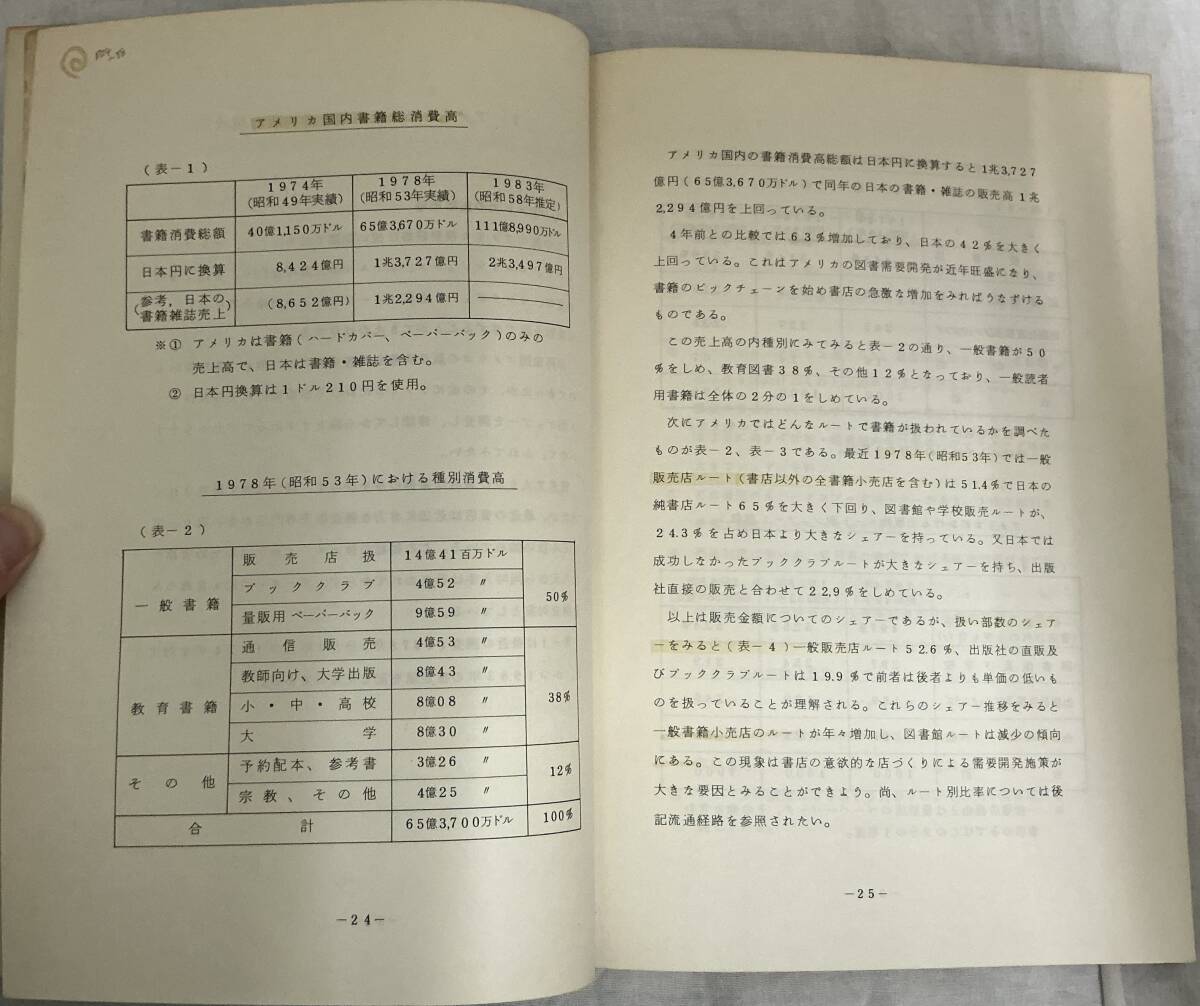 アメリカ国内書籍総消費高
(表－1)
1974年 (昭和49年実績) 1978年 (昭和53年実績) 1983年 (昭和58年推定)
書籍消費総額 40億1,150万ドル 65億3,670万ドル 111億8,990万ドル
日本円に換算 8,424億円 1兆3,727億円 2兆3,497億円
(参考，日本の書籍雑誌売上) (8,652億円) 1兆2,294億円 ―――
※① アメリカは書籍(ハードカバー、ペーパーバック)のみの
売上高で、日本は書籍・雑誌を含む。
② 日本円換算は1ドル210円を使用。
1978年(昭和53年)における種別消費高
(表－2)
一般書籍 販売店扱 14億41百万ドル 50%
ブッククラブ 4億52 〃
量販用ペーパーバック 9億59 〃
教育書籍 通信販売 4億53 〃 38%
教師向け、大学出版 8億43 〃
小・中・高校 8億08 〃
大学 8億30 〃
その他 予約配本、参考書 3億26 〃 12%
宗教、その他 4億25 〃
合計 65億3,700万ドル 100%
－24－
アメリカ国内の書籍消費高総額は日本円に換算すると1兆3,727
億円(65億3,670万ドル)で同年の日本の書籍・雑誌の販売高1兆
2,294億円を上回っている。
4年前との比較では63%増加しており、日本の42%を大きく
上回っている。これはアメリカの図書需要開発が近年旺盛になり、
書籍のビックチェーンを始め書店の急激な増加をみればうなずける
ものである。
この売上高の内種別にみてみると表－2の通り、一般書籍が50
%をしめ、教育図書38%、その他12%となっており、一般読者
用書籍は全体の2分の1をしめている。
次にアメリカではどんなルートで書籍が扱われているかを調べた
ものが表－2、表－3である。最近1978年(昭和53年)では一般
販売店ルート(書店以外の全書籍小売店を含む)は51.4%で日本の
純書店ルート65%を大きく下回り、図書館や学校販売ルートが、
24.3%を占め日本より大きなシェアーを持っている。又日本では
成功しなかったブッククラブルートが大きなシェアーを持ち、出版
社直接の販売と合わせて22,9%をしめている。
以上は販売金額についてのシェアーであるが、扱い部数のシェア
ーをみると(表－4)一般販売店ルート52.6%、出版社の直販及
びブッククラブルートは19.9%で前者は後者よりも単価の低いも
のを扱っていることが理解される。これらのシェアー推移をみると
一般書籍小売店のルートが年々増加し、図書館ルートは減少の傾向
にある。この現象は書店の意欲的な店づくりによる需要開発施策が
大きな要因とみることができよう。尚、ルート別比率については後
記流通経路を参照されたい。
－25－